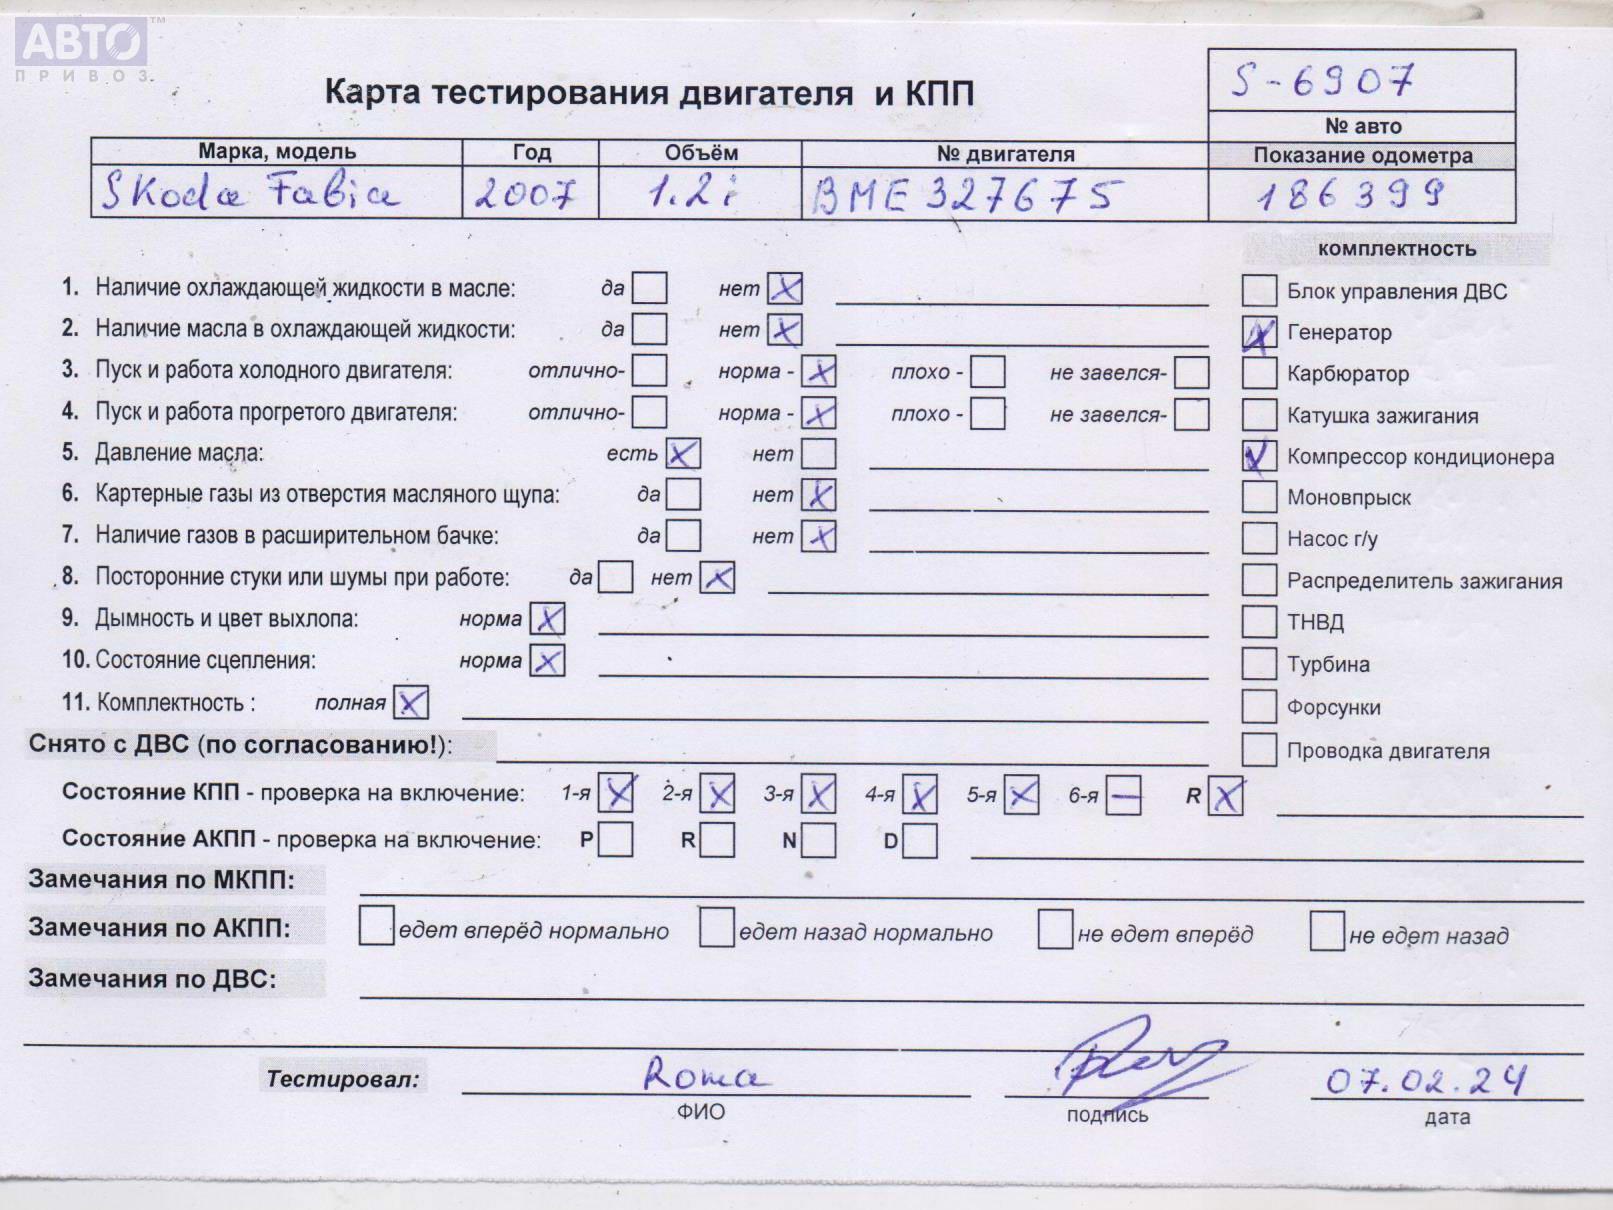 АВТО™
ПРИВОЗ
S-6907
Карта тестирования двигателя и КПП
№ авто
Марка, модель Год Объём № двигателя Показание одометра
Skoda Fabia 2007 1.2i BME 327675 186399
комплектность
1. Наличие охлаждающей жидкости в масле: да нет X Блок управления ДВС
2. Наличие масла в охлаждающей жидкости: да нет X X Генератор
3. Пуск и работа холодного двигателя: отлично- норма - X плохо - не завелся- Карбюратор
4. Пуск и работа прогретого двигателя: отлично- норма - X плохо - не завелся- Катушка зажигания
5. Давление масла: есть X нет V Компрессор кондиционера
6. Картерные газы из отверстия масляного щупа: да нет X Моновпрыск
7. Наличие газов в расширительном бачке: да нет X Насос г/у
8. Посторонние стуки или шумы при работе: да нет X Распределитель зажигания
9. Дымность и цвет выхлопа: норма X ТНВД
10. Состояние сцепления: норма X Турбина
11. Комплектность : полная X Форсунки
Снято с ДВС (по согласованию!): Проводка двигателя
Состояние КПП - проверка на включение: 1-я X 2-я X 3-я X 4-я X 5-я X 6-я — R X
Состояние АКПП - проверка на включение: P R N D
Замечания по МКПП:
Замечания по АКПП: едет вперёд нормально едет назад нормально не едет вперёд не едет назад
Замечания по ДВС:
Тестировал: Roma 07.02.24
ФИО подпись дата